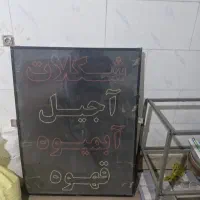 شکلات
آجیل
آبمیوه
قهوه